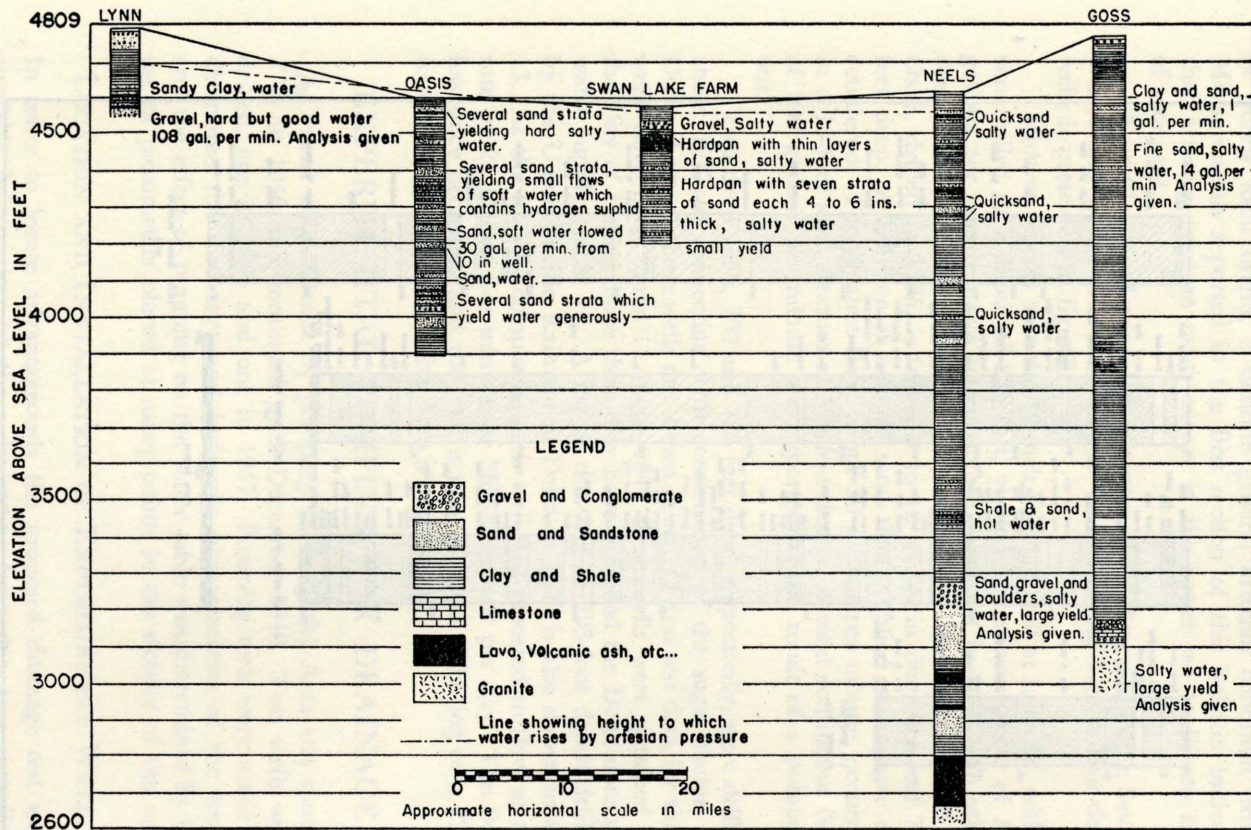 LYNN
GOSS
4809
OASIS
SWAN LAKE FARM
NEELS
Sandy Clay, water
Gravel, hard but good water
108 gal. per min. Analysis given
Several sand strata
yielding hard salty
water.
Several sand strata,
yielding small flows
of soft water which
contains hydrogen sulphid
Sand, soft water flowed
30 gal. per min. from
10 in well.
Sand, water.
Several sand strata which
yield water generously
Gravel, Salty water
Hardpan with thin layers
of sand, salty water
Hardpan with seven strata
of sand each 4 to 6 ins.
thick, salty water
small yield
Quicksand
salty water
Quicksand,
salty water
Quicksand,
salty water
Shale & sand,
hot water
Sand, gravel, and
boulders, salty
water, large yield.
Analysis given.
Clay and sand,
salty water, 7
gal. per min.
Fine sand, salty
water, 14 gal. per
min Analysis
given.
Salty water,
large yield
Analysis given
4500
4000
3500
3000
2600
ELEVATION ABOVE SEA LEVEL IN FEET
LEGEND
Gravel and Conglomerate
Sand and Sandstone
Clay and Shale
Limestone
Lava, Volcanic ash, etc...
Granite
Line showing height to which
water rises by artesian pressure
0 10 20
Approximate horizontal scale in miles